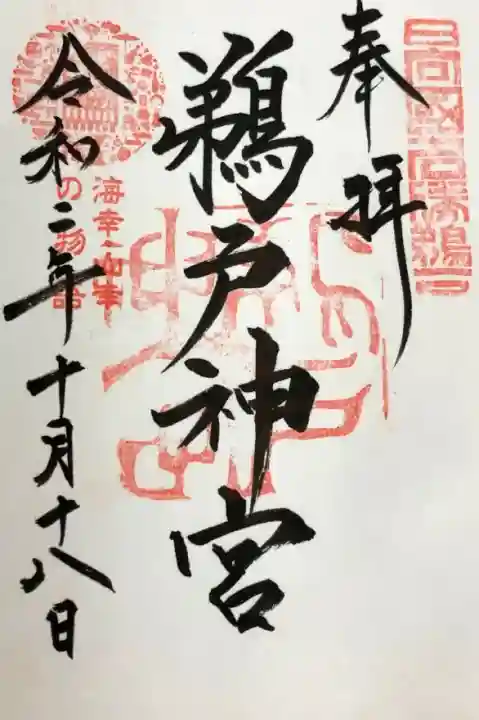 奉拝
鵜戸神宮
海幸・山幸
の物語
令和二年十月十八日